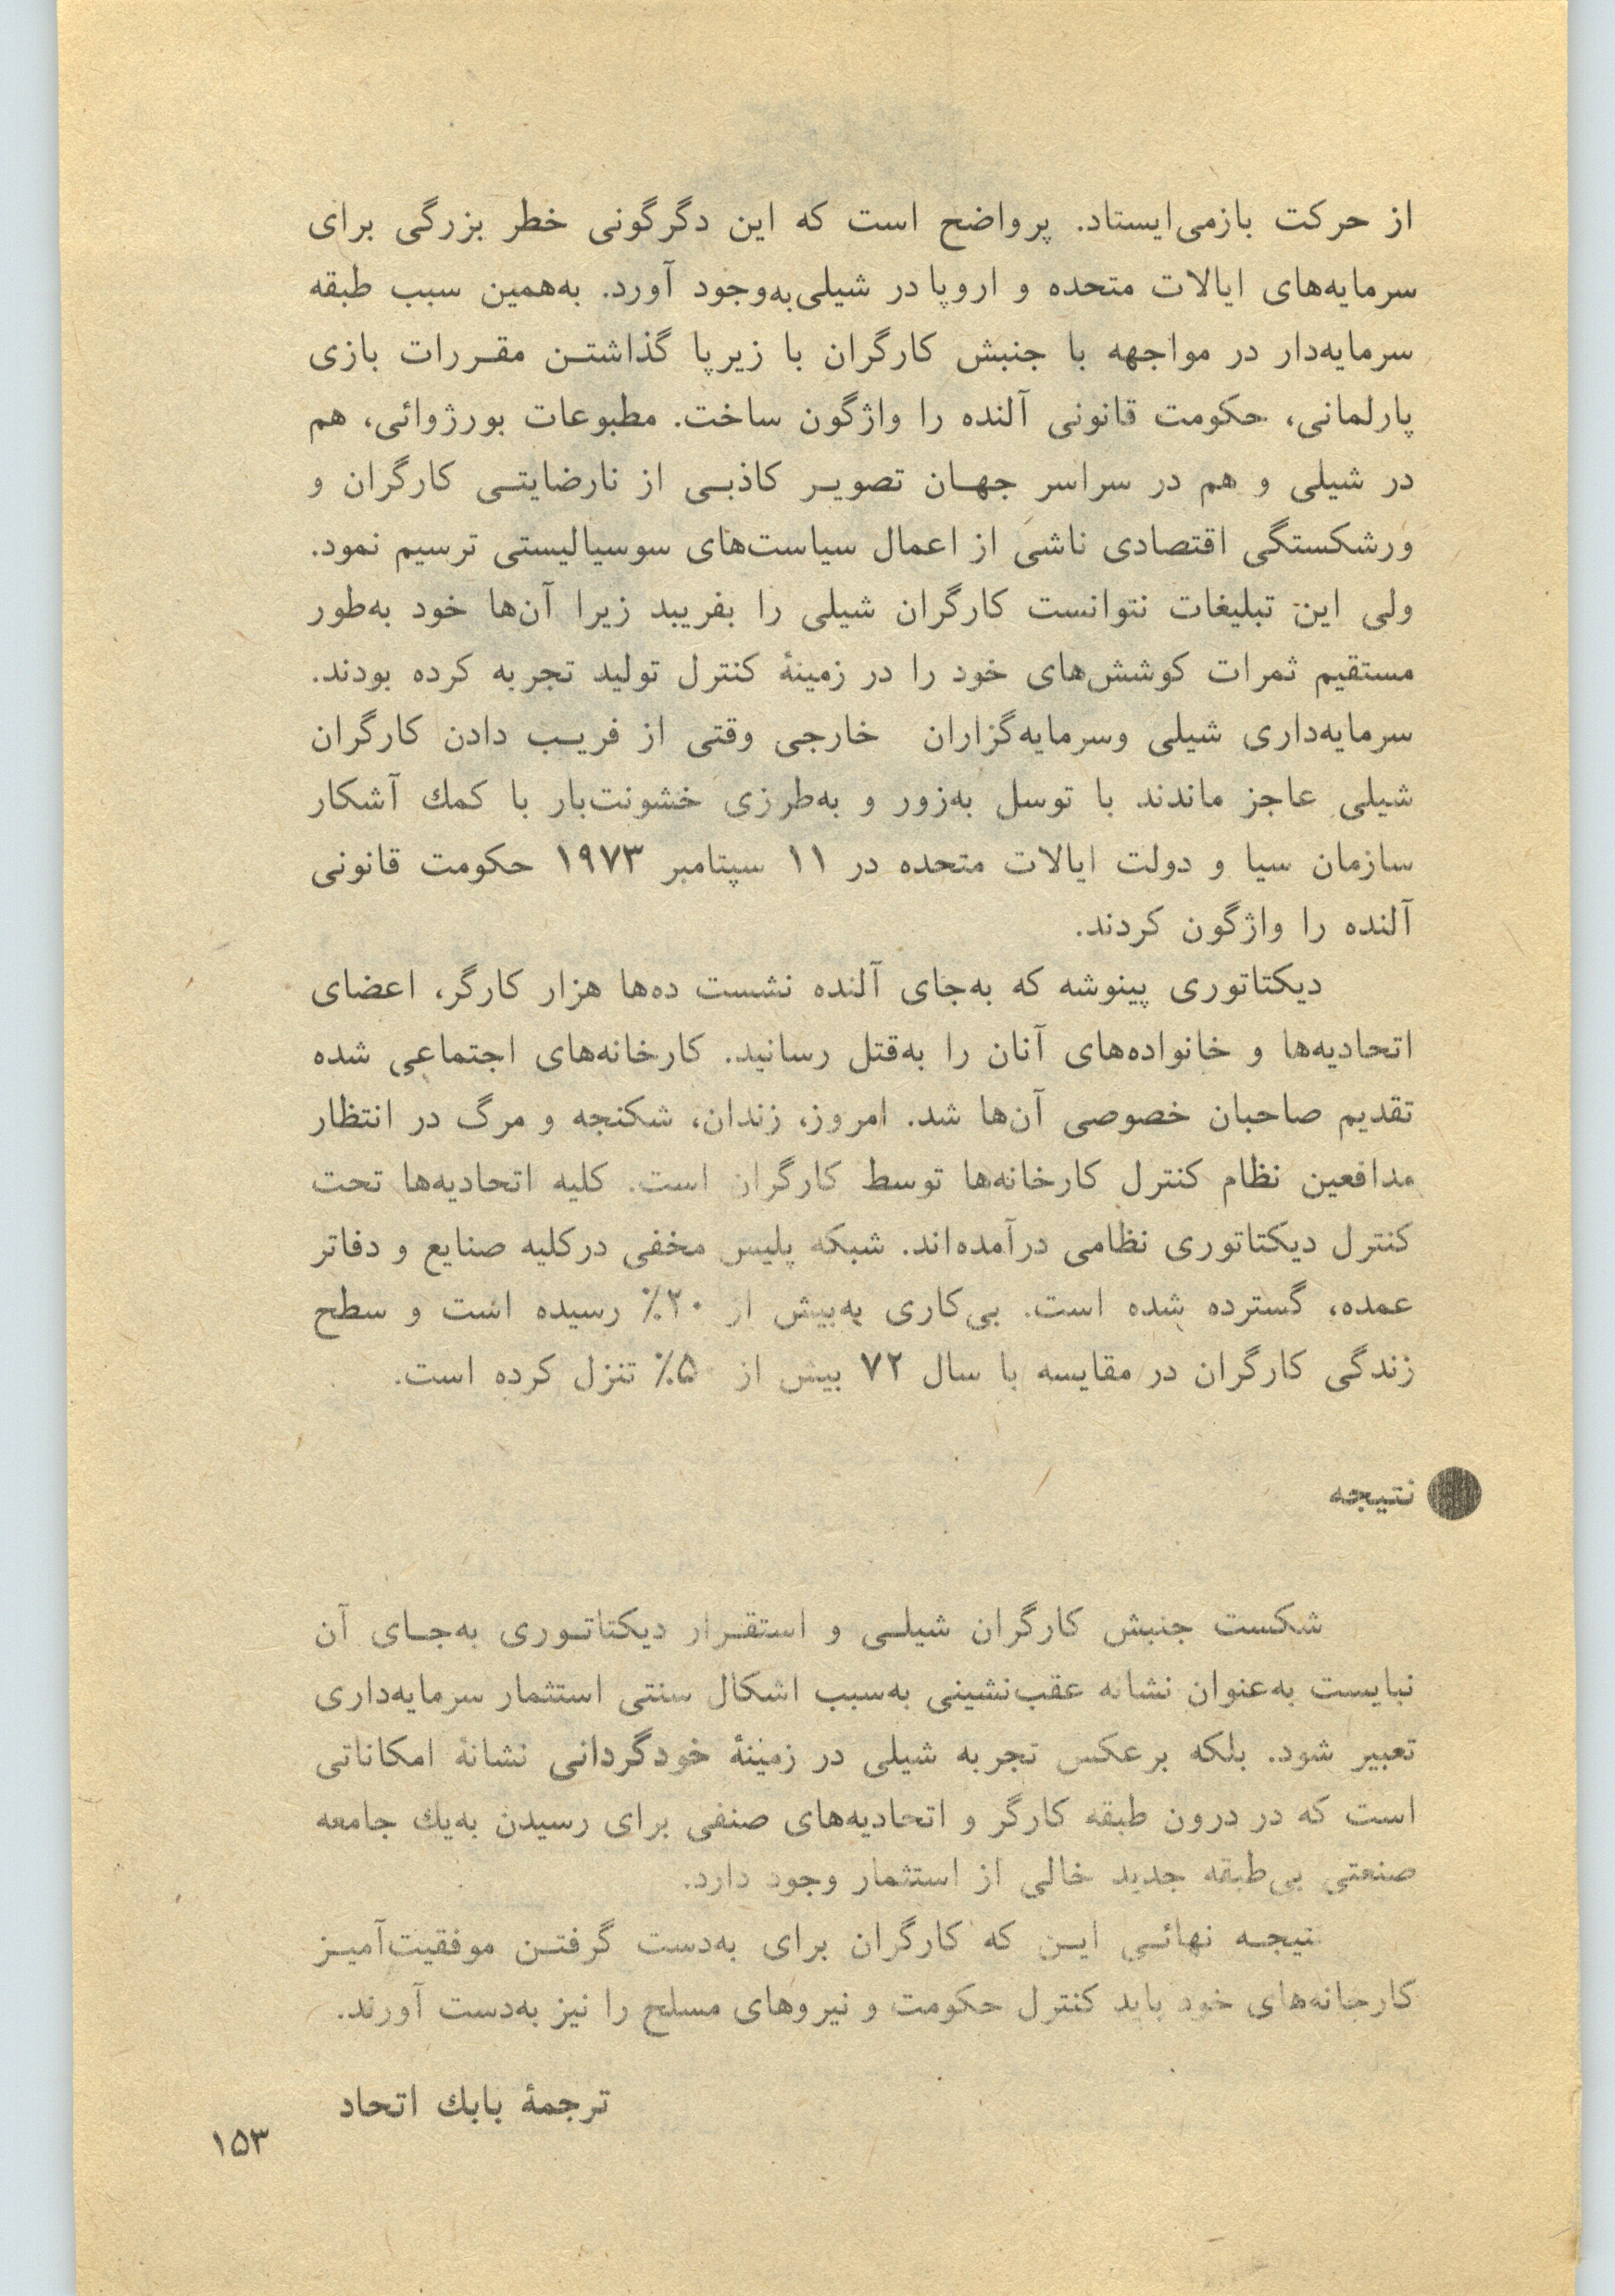 از حرکت بازمی‌ایستاد. پرواضح است که این دگرگونی خطر بزرگی برای
سرمایه‌های ایالات متحده و اروپا در شیلی به‌وجود آورد. به‌همین سبب طبقه
سرمایه‌دار در مواجهه با جنبش کارگران با زیرپا گذاشتـن مقـررات بازی
پارلمانی، حکومت قانونی آلنده را واژگون ساخت. مطبوعات بورژوائی، هم
در شیلی و هم در سراسر جهـان تصویـر کاذبـی از نارضایتـی کارگران و
ورشکستگی اقتصادی ناشی از اعمال سیاست‌های سوسیالیستی ترسیم نمود.
ولی این تبلیغات نتوانست کارگران شیلی را بفریبد زیرا آن‌ها خود به‌طور
مستقیم ثمرات کوشش‌های خود را در زمینهٔ کنترل تولید تجربه کرده بودند.
سرمایه‌داری شیلی وسرمایه‌گزاران خارجی وقتی از فریـب دادن کارگران
شیلی عاجز ماندند با توسل به‌زور و به‌طرزی خشونت‌بار با کمك آشکار
سازمان سیا و دولت ایالات متحده در ۱۱ سپتامبر ۱۹۷۳ حکومت قانونی
آلنده را واژگون کردند.
دیکتاتوری پینوشه که به‌جای آلنده نشست ده‌ها هزار کارگر، اعضای
اتحادیه‌ها و خانواده‌های آنان را به‌قتل رسانید. کارخانه‌های اجتماعی شده
تقدیم صاحبان خصوصی آن‌ها شد. امروز، زندان، شکنجه و مرگ در انتظار
مدافعین نظام کنترل کارخانه‌ها توسط کارگران است. کلیه اتحادیه‌ها تحت
کنترل دیکتاتوری نظامی درآمده‌اند. شبکه پلیس مخفی درکلیه صنایع و دفاتر
عمده، گسترده شده است. بی‌کاری به‌بیش از ۲۰٪ رسیده است و سطح
زندگی کارگران در مقایسه با سال ۷۲ بیش از تنزل کرده است.
نتیجه
شکست جنبش کارگران شیلـی و استقـرار دیکتاتـوری به‌جـای آن
نبایست به‌عنوان نشانه عقب‌نشینی به‌سبب اشکال سنتی استثمار سرمایه‌داری
تعبیر شود. بلکه برعکس تجربه شیلی در زمینهٔ خودگردانی نشانهٔ امکاناتی
است که در درون طبقه کارگر و اتحادیه‌های صنفی برای رسیدن به‌یك جامعه
صنعتی بی‌طبقه جدید خالی از استثمار وجود دارد.
نتیجـه نهائـی ایـن که کارگران برای به‌دست گرفتـن موفقیت‌آمیـز
کارخانه‌های خود باید کنترل حکومت و نیروهای مسلح را نیز به‌دست آورند.
ترجمهٔ بابك اتحاد
۱۵۳